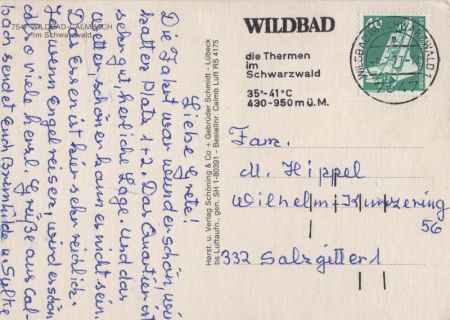 7547 WILDBAD-CALMBACH
im Schwarzwald
Liebe Grete!
Die Fahrt war wunderschön, wir
hatten Platz 1+2. Das Quartier ist
sehr gut, herliche Lage. Und das
Wetter, schöner kann es nicht sein.
Das Essen ist hier sehr reichlich.
Ja wenn Engel reisen, wird es schön
Also viele herzl. Grüße aus Cal-
bach sendet Euch Brunhilde u. Sylke
Herst. u. Verlag Schöning & Co + Gebrüder Schmidt - Lübeck
bs Luftaufn., gen. SH 1-80391 - Bestellnr. Calmb Luft RS 4175
WILDBAD
die Thermen
im
Schwarzwald
35°-41°C
430-950 m ü.M.
WILDBAD IM SCHWARZWALD 1
7547
40
Fam.
M. Hippel
Wilhelm-Kunzering
56
332 Salzgitter 1